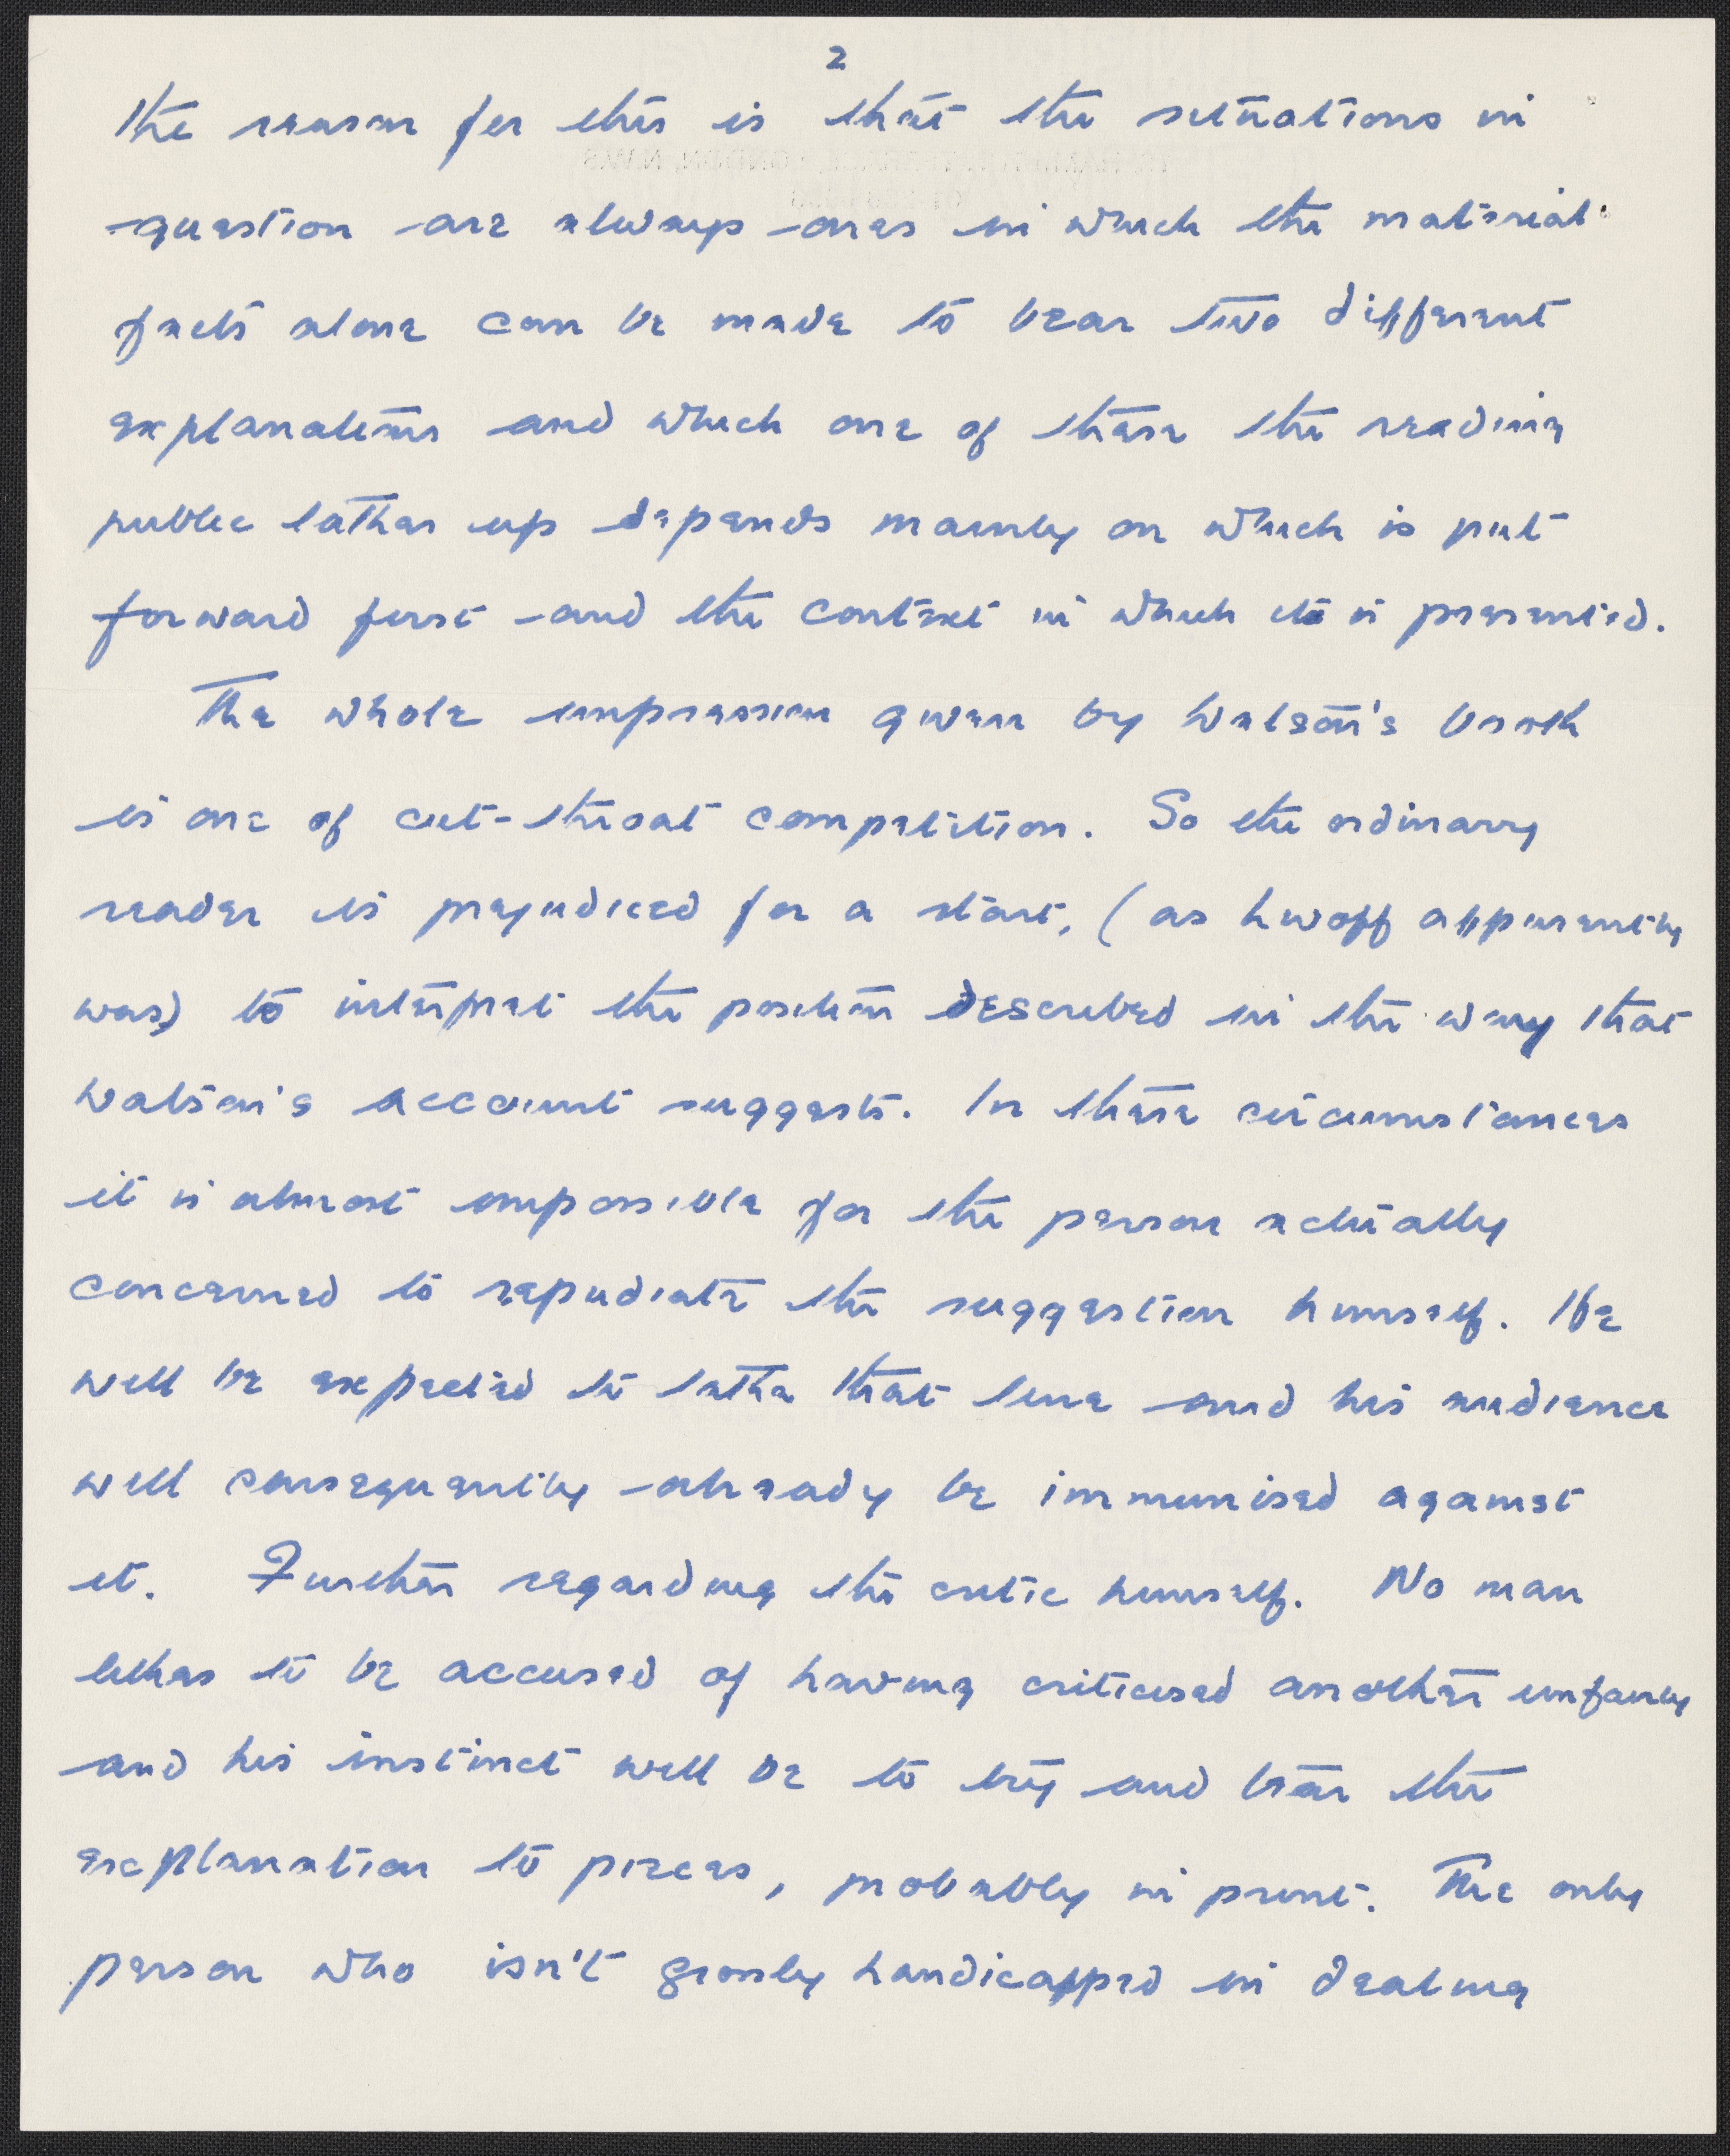 2
The reason for this is that the situations in
question are always ones in which the material
facts alone can be made to bear two different
explanations and which one of these the reading
public takes up depends mainly on which is put
forward first and the context in which it is presented.
The whole impression given by Watson's book
is one of cut-throat competition. So the ordinary
reader is prejudiced for a start, (as Lwoff apparently
was) to interpret the position described in the way that
Watson's account suggests. In these circumstances
it is almost impossible for the person actually
concerned to repudiate the suggestion himself. He
will be expected to take that line and his audience
will consequently already be immunised against
it. Further regarding the critic himself. No man
likes to be accused of having criticised another unfairly
and his instinct will be to try and tear the
explanation to pieces, probably in print. The only
person who isn't grossly handicapped in dealing